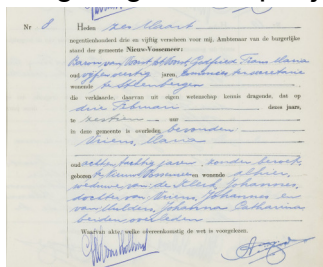 Nr 8. Heden zes Maart
negentienhonderd drie en vijftig verscheen voor mij, Ambtenaar van de burgerlijke
stand der gemeente Nieuw-Vossemeer:
Godfried Frans Maria
oud vijfenveertig jaren,
wonende te Steenbergen
die verklaarde, daarvan uit eigen wetenschap kennis dragende, dat op
drie Februari dezes jaars,
te zestien uur
in deze gemeente is overleden bevonden
Vriens, Maria
oud achtentachtig jaren, zonder beroep,
geboren te Nieuw-Vossemeer en wonende alhier,
weduwe van de Klerk Johannes,
dochter van Vriens, Johannes en
van Mulders, Johanna Catharina
beiden overleden
Waarvan akte, welke overeenkomstig de wet is voorgelezen.